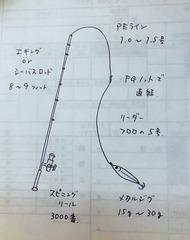 PEライン
1.0〜1.5号
エギング
or
シーバスロッド
8〜9フィート
FGノットで
直結
リーダー
フロロ 5号
スピニング
リール
3000番
メタルジグ
15g〜30g